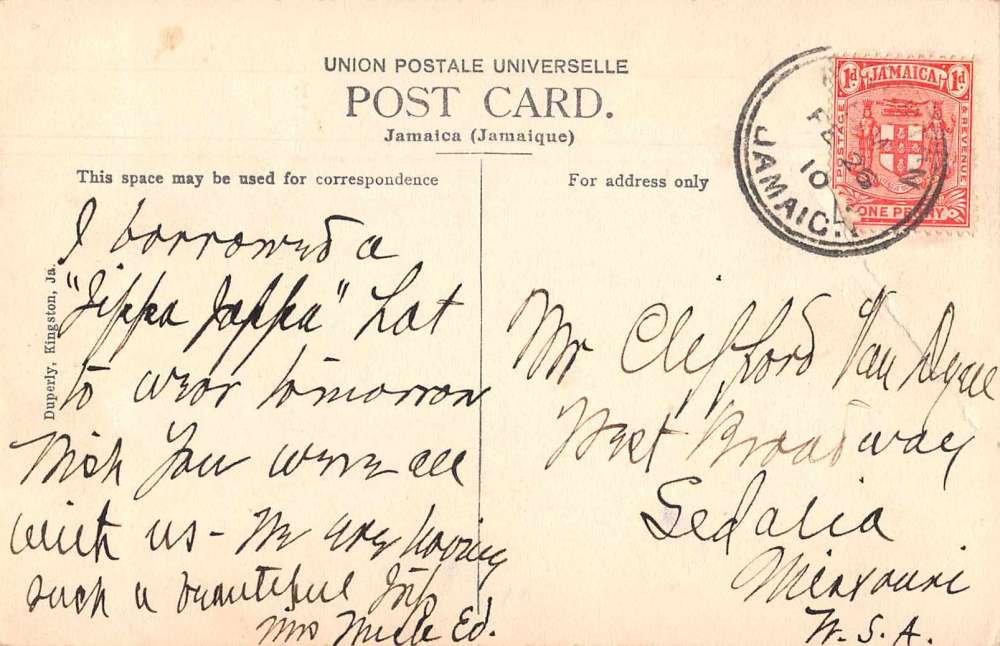 UNION POSTALE UNIVERSELLE
POST CARD.
Jamaica (Jamaique)
This space may be used for correspondence
For address only
Duperly, Kingston, Ja.
1d JAMAICA 1d
POSTAGE
& REVENUE
ONE PENNY
FE 20
10
JAMAICA
I borrowed a
"Jippa Jappa" hat
to wear tomorrow
Wish You were all
with us - We are having
such a beautiful trip
Mrs Ed.
Mr Clifford Van Dyne
West Broadway
Sedalia
Missouri
U.S.A.